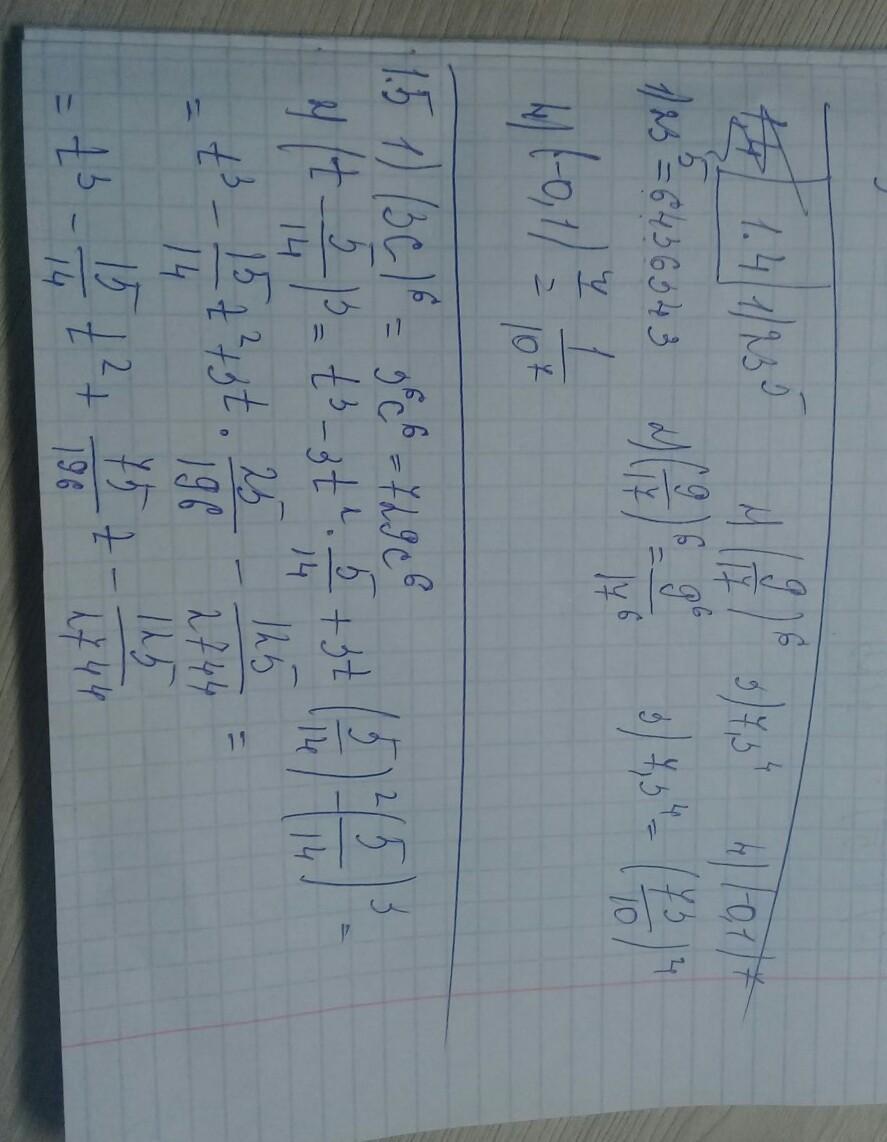 1.4) 1) 23⁵ 2) (9/17)⁶ 3) 7,3⁴ 4) (-0,1)⁷
1) 23⁵ = 6436343 2) (9/17)⁶ = 9⁶/17⁶ 3) 7,3⁴ = (73/10)⁴
4) (-0,1)⁷ = 1/10⁷
1.5 1) (3c)⁶ = 3⁶c⁶ = 729c⁶
2) (t - 5/14)³ = t³ - 3t² · 5/14 + 3t (5/14)² - (5/14)³ =
= t³ - 15/14 t² + 3t · 25/196 - 125/2744 =
= t³ - 15/14 t² + 75/196 t - 125/2744